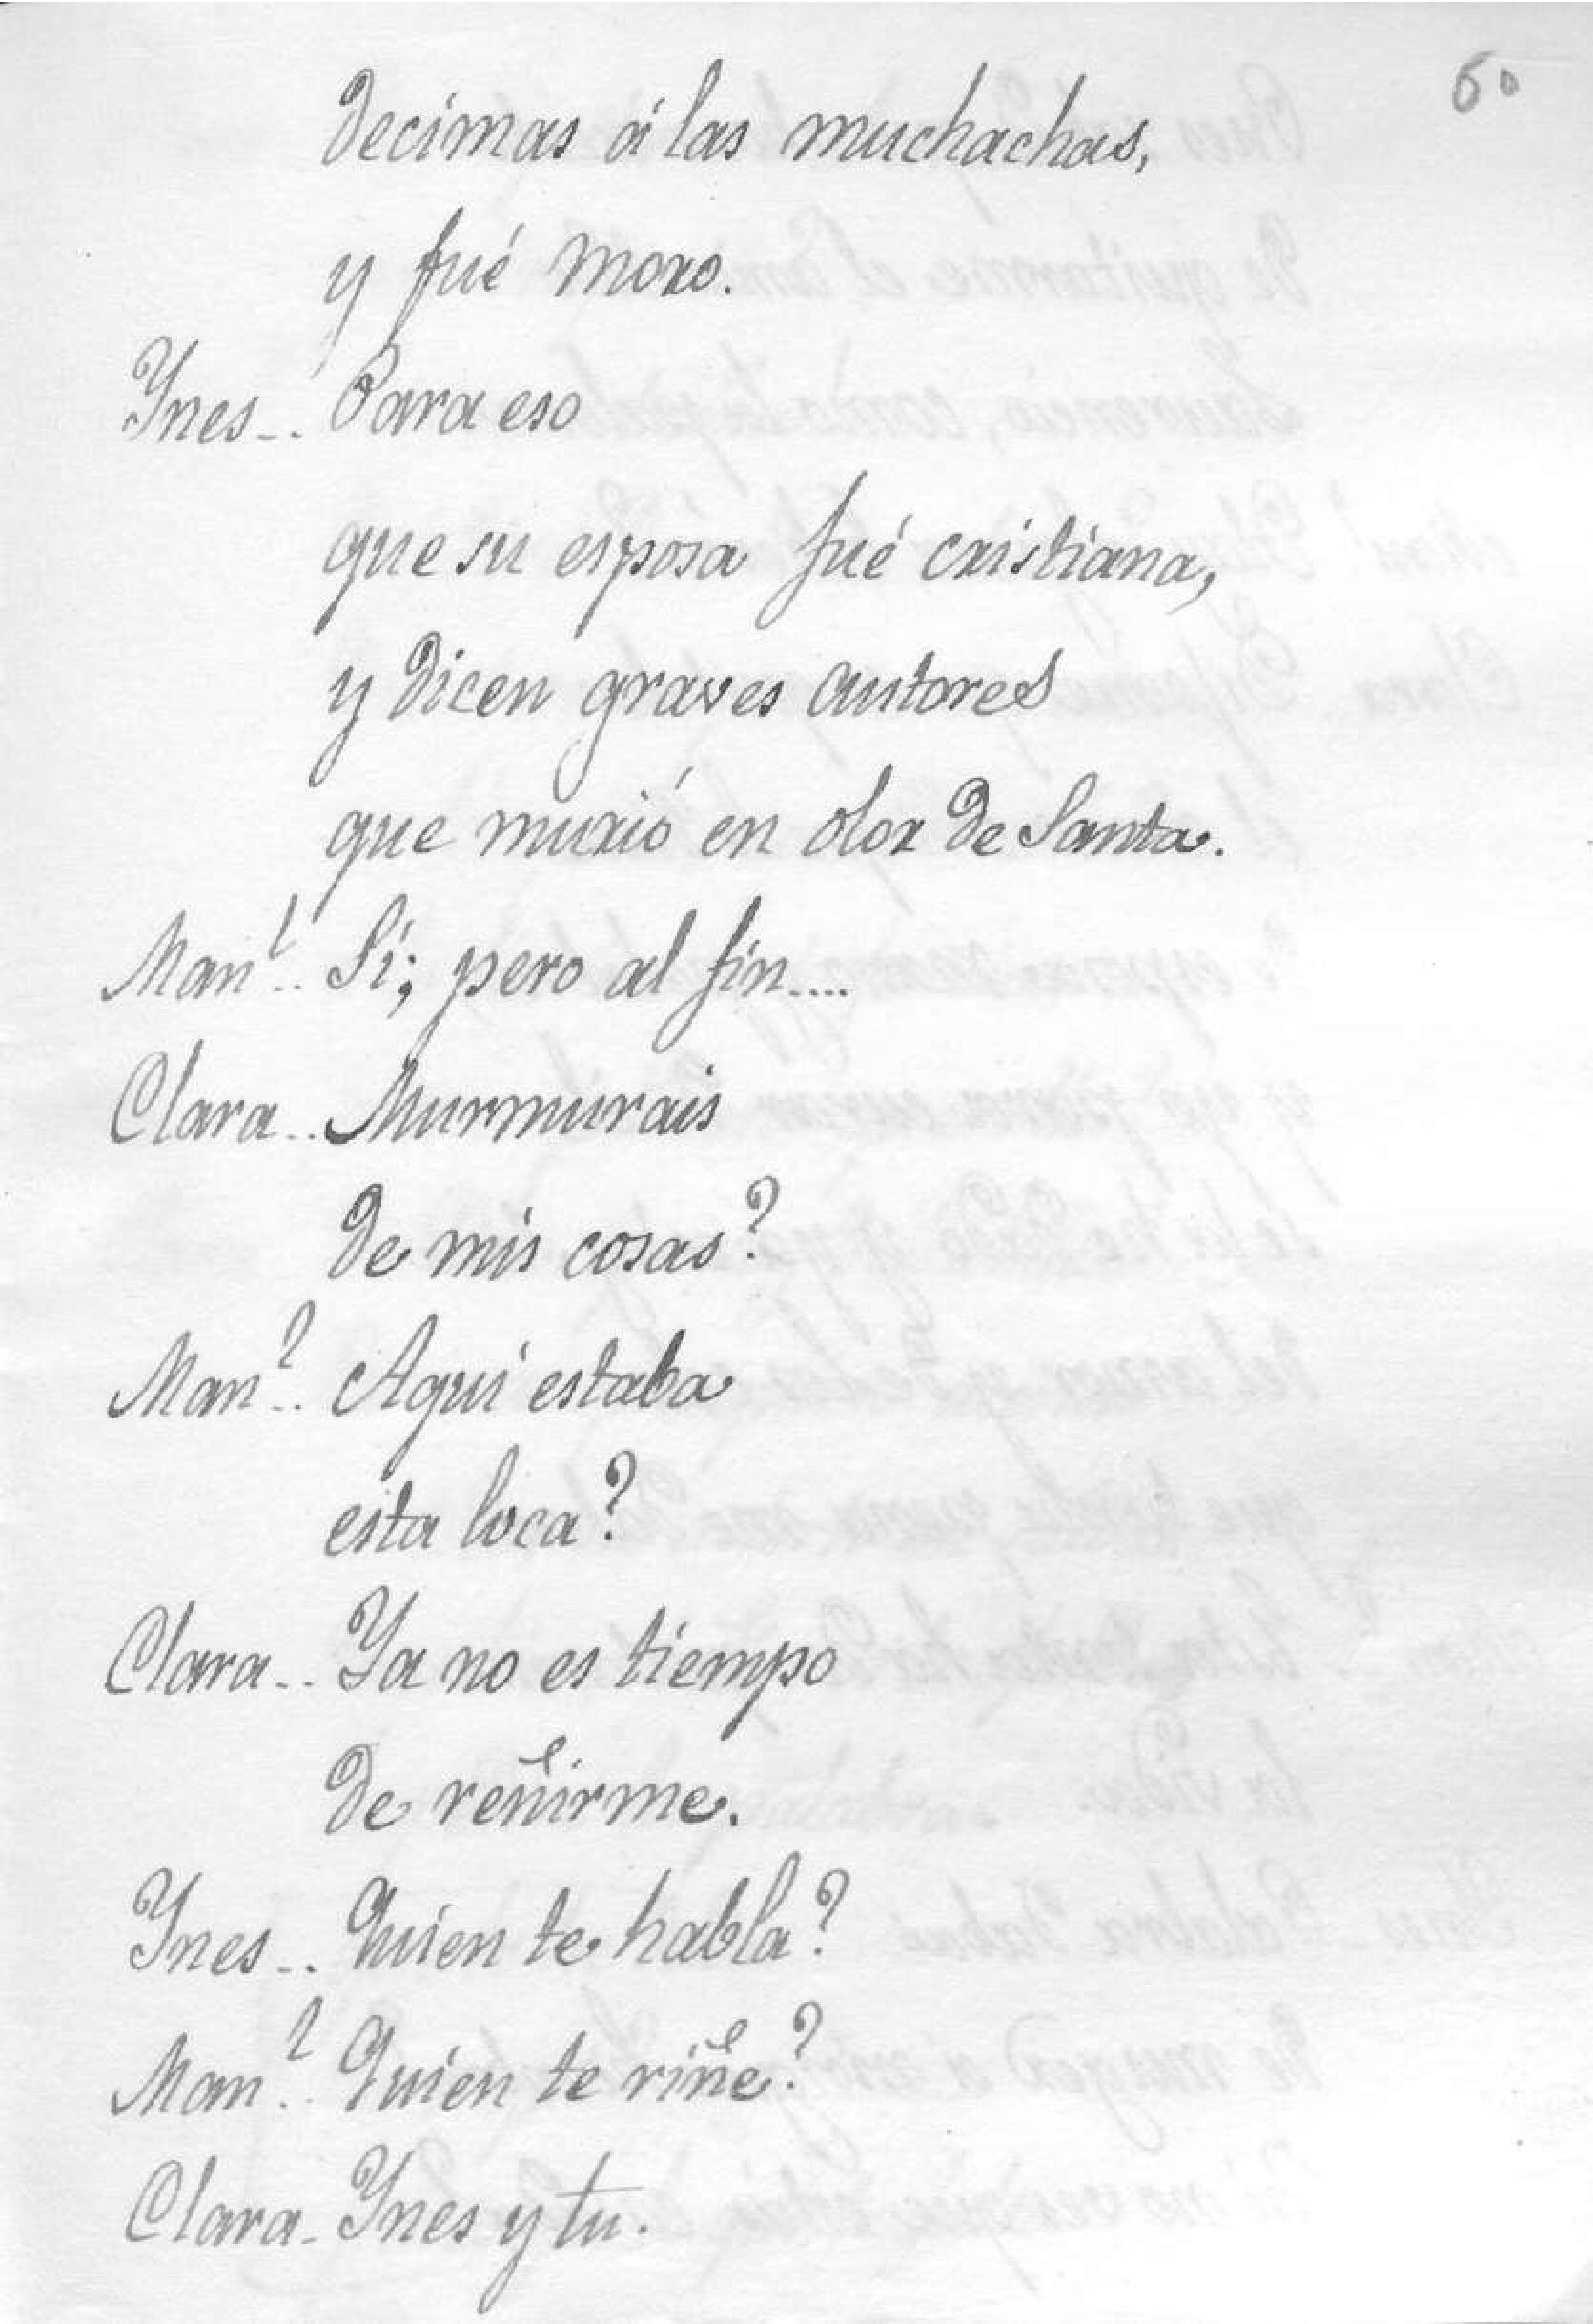 60
decimas á las muchachas,
y fué moro.
Ynes -. Para eso
que su esposa fué cristiana,
y dicen graves autores
que murió en olor de Santa.
Man.l.. Si; pero al fin....
Clara.. Murmurais
de mis cosas?
Man.l.. Aqui estaba
esta loca?
Clara.. Ya no es tiempo
de reñirme.
Ynes -. Quien te habla?
Man.l.. Quien te riñe?
Clara - Ynes y tu.